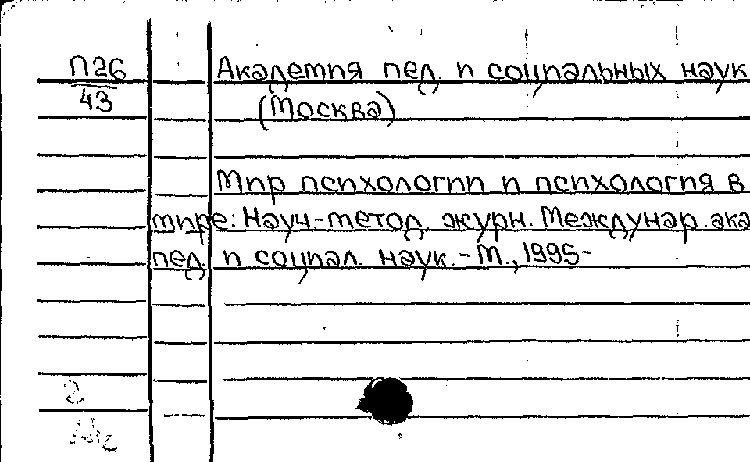 П26 Академия пед. и социальных наук
43 (Москва)
Мир психологии и психология в
мире: Науч-метод. журн. Междунар. ака
пед. и социал. наук. - М., 1995-
2